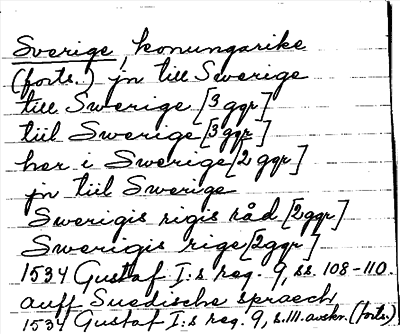 Sverige, konungarike
(forts.) jn till Swerige
till Swerige [3 ggr]
tiil Swerige [3 ggr]
her i Swerige [2 ggr]
jn tiil Swerige
Swerigis rigis råd [2 ggr]
Swerigis rige [2 ggr]
1534 Gustaf I:s reg. 9, ss. 108-110.
auff Suedische spraech
1534 Gustaf I:s reg. 9, s. 111. avskr. (forts.)